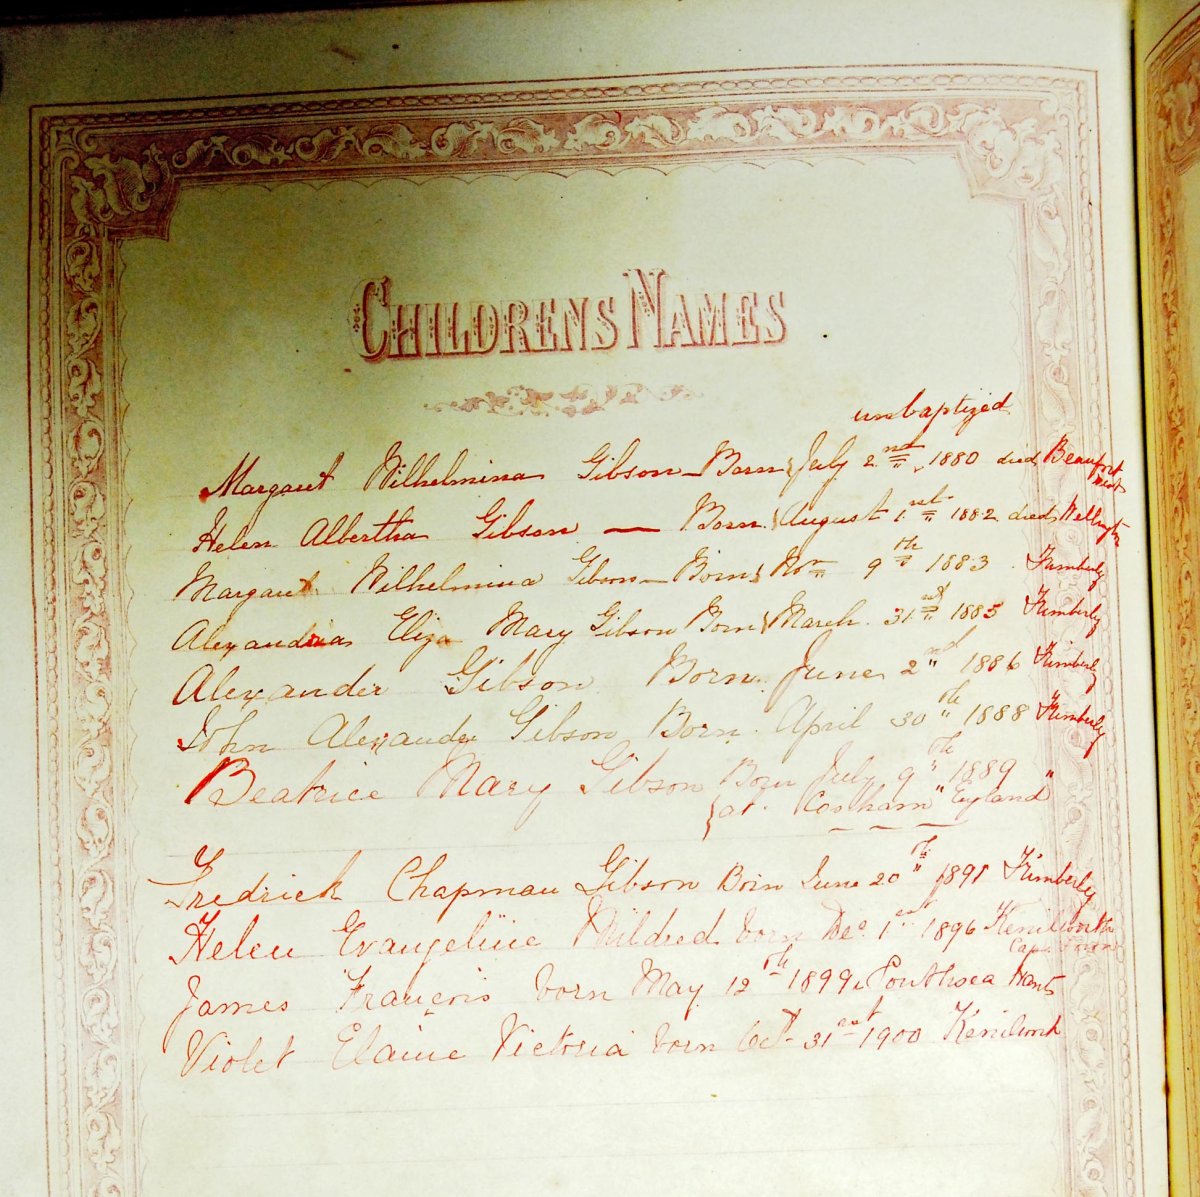 CHILDRENS NAMES
unbaptized
Margaret Wilhelmina Gibson – Born July 2nd 1880 died Beaufort West
Helen Albertha Gibson — Born August 1st 1882 died Wellington
Margaret Wilhelmina Gibson – Born Nov 9th 1883 Kimberly
Alexandria Eliza Mary Gibson Born March 31st 1885 Kimberly
Alexander Gibson Born June 2nd 1886 Kimberly
John Alexander Gibson Born April 30th 1888 Kimberly
Beatrice Mary Gibson Born July 9th 1889
at Cosham England
Fredrick Chapman Gibson Born June 20th 1891 Kimberly
Helen Evangeline Mildred born Dec 1st 1896 Kenilworth
Cape Town
James Francois born May 12th 1899 Southsea Hants
Violet Elaine Victoria born Oct 31st 1900 Kenilworth